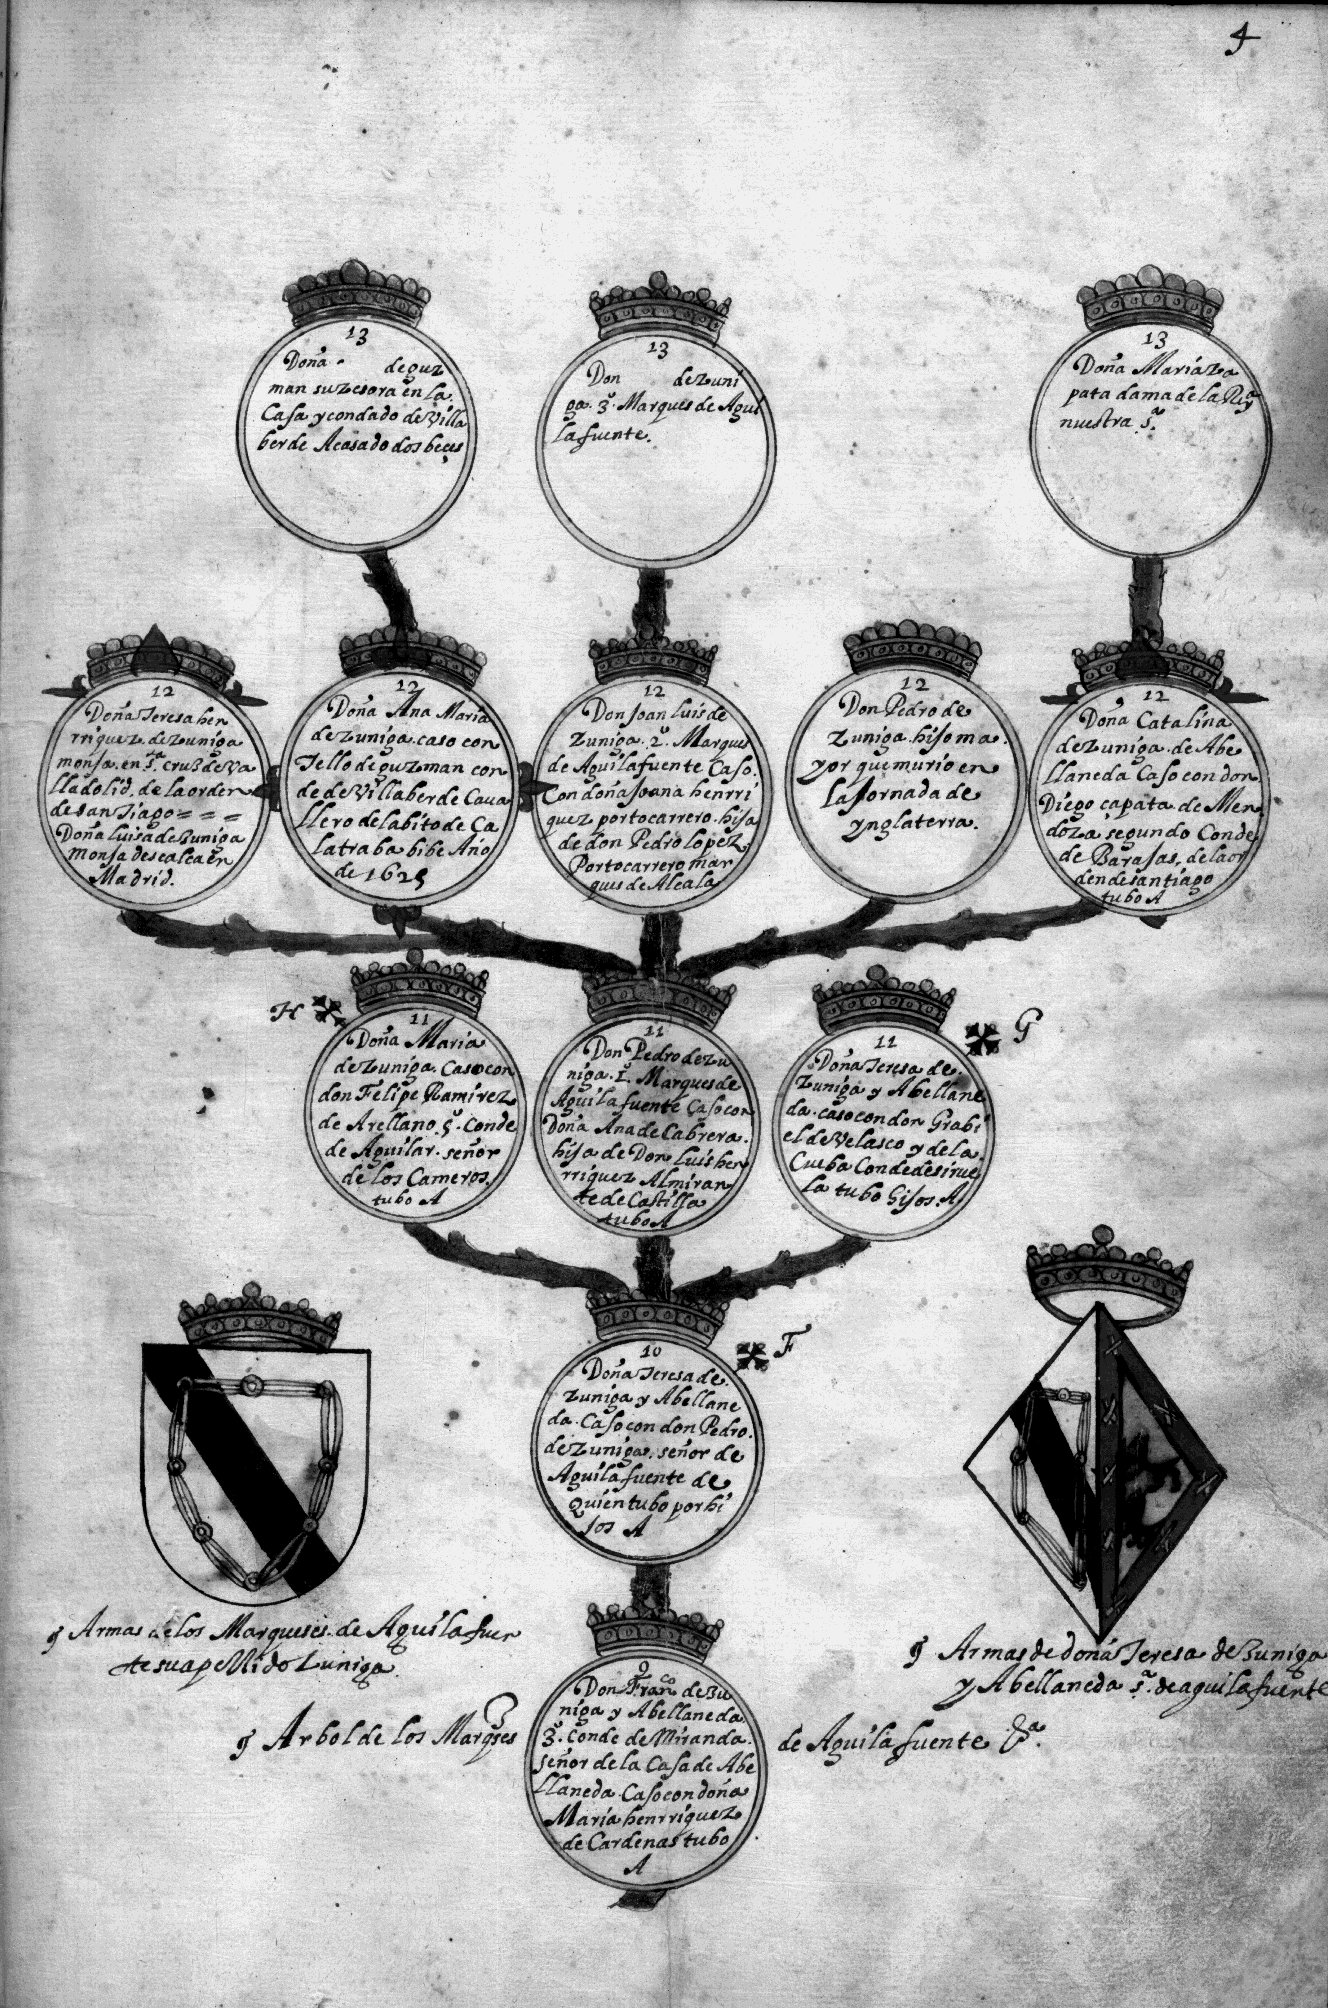 4
13
Doña de guz
man suzesora en la
Casa y condado de Villa
berde Acasado dos beçes
13
Don de zuni
ga. 3º. Marques de Agui
la fuente.
13
Doña Maria za
pata dama de la Reyª
nuestra. sª.
12
Doña Teresa hen
rriquez. de zuniga
monja. en sª. cruz de Va
lladolid. de la orden
de san Tiago = = =
Doña luisa de Zuniga
monja descalça en
Madrid.
12
Doña Ana Maria
de zuniga. caso con
Tello de guzman con
de de Villaberde Caua
llero del abito de Ca
latraba bibe Año
de 1625
12
Don Joan luis de
zuniga. 2º. Marques
de Aguilafuente Caso.
Con doña Joana henrri
quez portocarrero. hija
de don Pedro lopez
Portocarrero mar
ques de Alcala
12
Don Pedro de
zuniga. hijo ma
yor que murio en
la Jornada de
ynglaterra.
12
Doña Catalina
de zuniga. de Abe
llaneda Caso con don
Diego çapata de Men
doza segundo Conde
de Barajas, de la or
den de santiago
tubo A
H
11
Doña Maria
de zuniga. Caso con
don Felipe Ramirez
de Arellano. 5º. Conde
de Aguilar. señor
de los Cameros.
tubo A
11
Don Pedro de zu
niga. 1º. Marques de
Aguila fuente Caso con
Doña Ana de Cabrera.
hija de Don Luis hen
rriquez Almiran
te de Castilla
tubo A
G
11
Doña Teresa de
zuniga y Abellane
da. caso con don Grabi
el de Velasco y de la
Cueba Conde de sirue
la tubo hijos. A
F
10
Doña Teresa de
zuniga y Abellane
da. Caso con don Pedro.
de zuniga. señor de
Aguila fuente de
Quien tubo por hi
jos A
Armas de los Marqueses. de Aguila fuen
te su apellido Zuniga.
Armas de doña Teresa de Zuniga
y Abellaneda sª. de aguila fuente
9
Don Franco. de Zu
niga y Abellaneda
3º. Conde de Miranda.
señor de la Casa de Abe
llaneda. Caso con doña
Maria henrriquez
de Cardenas tubo
A
Arbol de los Marqses de Aguila fuente